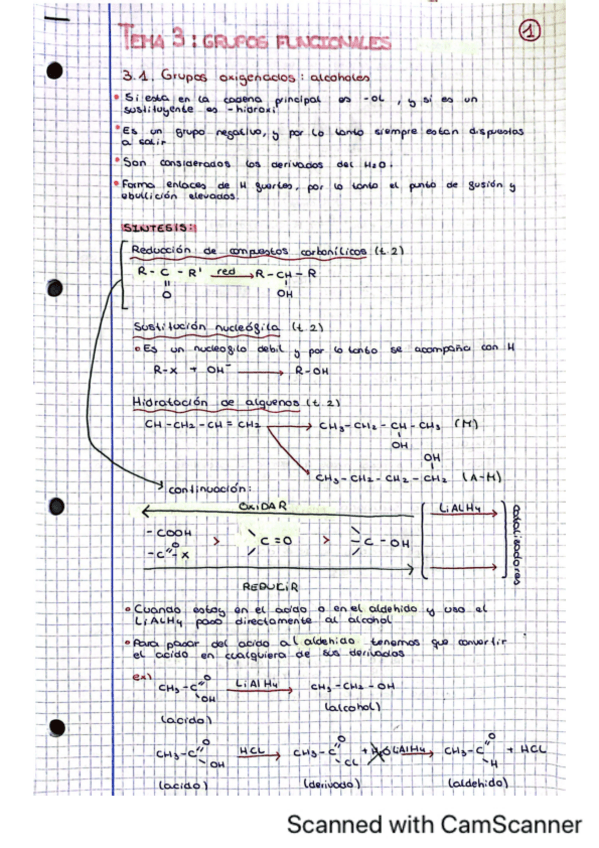 TEMA 3: GRUPOS FUNCIONALES
1
3.1. Grupos oxigenados: alcoholes
• Si está en la cadena principal es -OL, y si es un
sustituyente es -hidroxi.
• Es un grupo negativo, y por lo tanto siempre estan dispuestos
a salir.
• Son considerados los derivados del H2O.
• Forma enlaces de H fuertes, por lo tanto el punto de fusión y
ebullición elevados.
SINTESIS:
Reducción de compuestos carbonílicos (t.2)
R - C - R' red → R - CH - R
O OH
Sustitución nucleófila (t.2)
• Es un nucleofilo debil y por lo tanto se acompaña con H
R-X + OH⁻ → R-OH
Hidratación de alquenos (t.2)
CH - CH2 - CH = CH2 → CH3 - CH2 - CH - CH3 (M)
OH
OH
CH3 - CH2 - CH2 - CH2 (A-M)
continuación:
OXIDAR
LiAlH4
- COOH > C=O > C - OH
- C - X
O
catalizadores
REDUCIR
• Cuando estoy en el acido o en el aldehido y uso el
LiAlH4 paso directamente al alcohol
• Para pasar del acido al aldehido tenemos que convertir
el acido en cualquiera de sus derivados
ex)
CH3 - C O OH LiAlH4 → CH3 - CH2 - OH
(acido) (alcohol)
CH3 - C O OH HCL → CH3 - C O CL + LiAlH4 → CH3 - C O H + HCL
(acido) (derivado) (aldehido)
Scanned with CamScanner